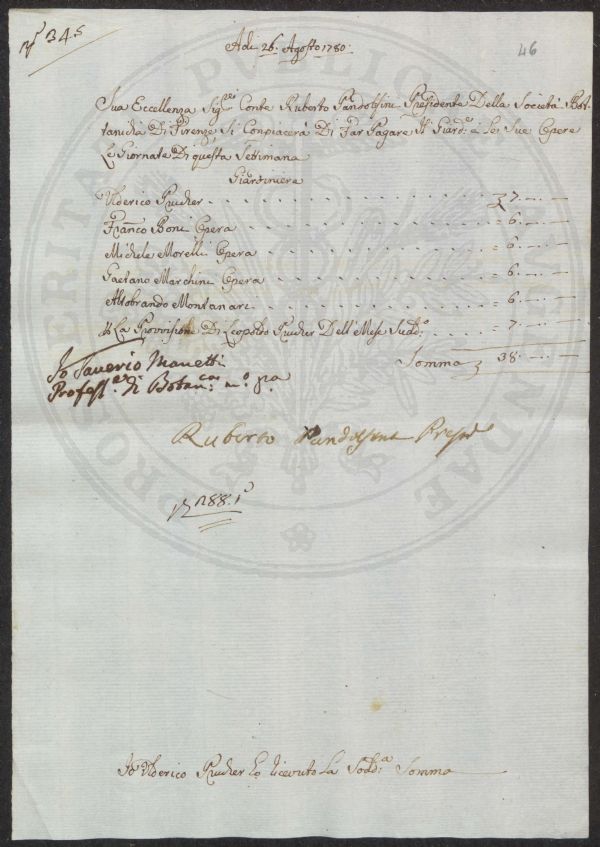 N.º 345
Adi 26. Agosto 1780.
46
Sua Eccellenza Sig.re Conte Ruberto Pandolfini Presidente Della Società Bot-
tanicha Di Firenze Si Conpiacerà Di Far Pagare Al Giard.e e Lei Sue Opere
Le Giornate Di questa Settimana
Giardiniere
Ulderico Prucker . . . . . 7. — —
Franc.co Boni Opera . . . . . = 6. — —
Michele Morelli Opera . . . . . = 6. — —
Gaetano Marchini Opera . . . . . = 6. — —
Aldobrando Montanari . . . . . = 6. — —
La Provvisione Di Leopoldo Prucker Dell'Mese Sudd.o . . = 7. — —
Somma 38. — —
Io Saverio Manetti
Profess.re di Botan.ca m.o p.a
Ruberto Pandolfini Presid.e
288.
PROSPERITATI PUBLICAE AUGENDAE
Io Ulderico Prucker ho ricevuto La Sodd.a Somma